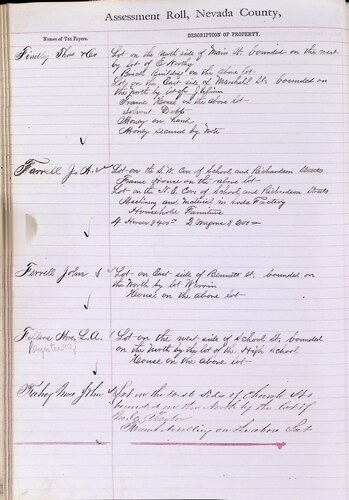 Assessment Roll, Nevada County,
NAMES OF TAX PAYERS.
DESCRIPTION OF PROPERTY.
Findley Thos & Co
Lot on the north side of Main St. bounded on the west
by lot of E
Brick Building on the above lot
Lot on the East side of Marshall St. bounded on
the north by lot of
Frame House on the above lot
Solvent Debts
Money on hand
Money secured by note
Farrell J. A.
Lot on the S.W. Cor. of School and Richardson Streets
Frame House on the above lot
Lot on the N.E. Cor. of School and Richardson Streets
Machinery and material in Soda Factory
Household Furniture
4 Horses $400 2 Wagons $200
Ferrell John S
Lot on East side of Bennett St. bounded on
the North by lot
House on the above lot
Hon. L. A.
Lot on the west side of School St. bounded
on the North by the lot of the High School
House on the above lot
Mrs John
Lot on the West side of Church St
bounded on the North by the lot of
dwelling on the above Lot